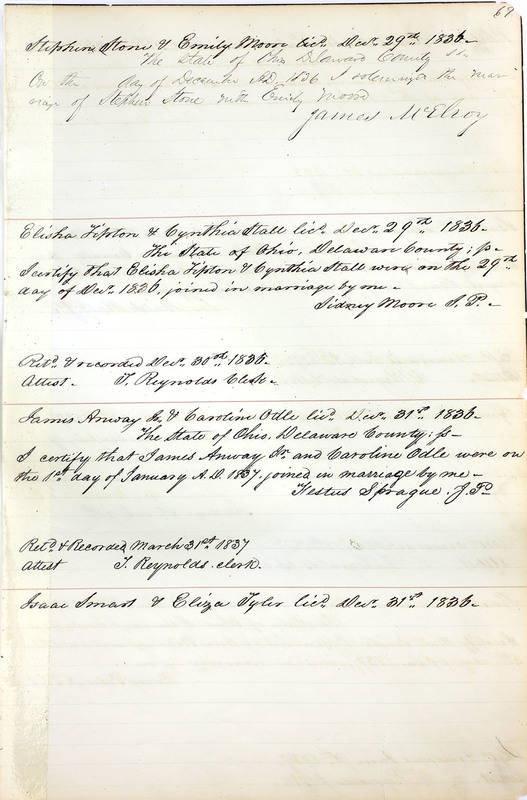 69
Stephen Stone & Emily Moore licd. Decr. 29th 1836-
The State of Ohio Delaware County ss
On the day of December AD, 1836 I solemnized the mar
riage of Stephen Stone with Emily Moore
James McElroy
Elisha Tipton & Cynthia Stall licd. Decr. 29th 1836-
The State of Ohio, Delaware County; ss-
I certify that Elisha Tipton & Cynthia Stall were on the 29th
day of Decr. 1836, joined in marriage by me-
Sidney Moore J. P.-
Retd. & recorded Decr. 30th 1836-
Attest- T. Reynolds Clerk-
James Anway Jr. & Caroline Odle licd. Decr. 31st 1836-
The State of Ohio, Delaware County; ss-
I certify that James Anway Jr. and Caroline Odle were on
the 1st day of January A.D. 1837, joined in marriage by me-
Festus Sprague. J.P.
Retd. & Recorded March 31st 1837
Attest T. Reynolds. clerk.
Isaac Smart & Eliza Tyler licd. Decr. 31st 1836-